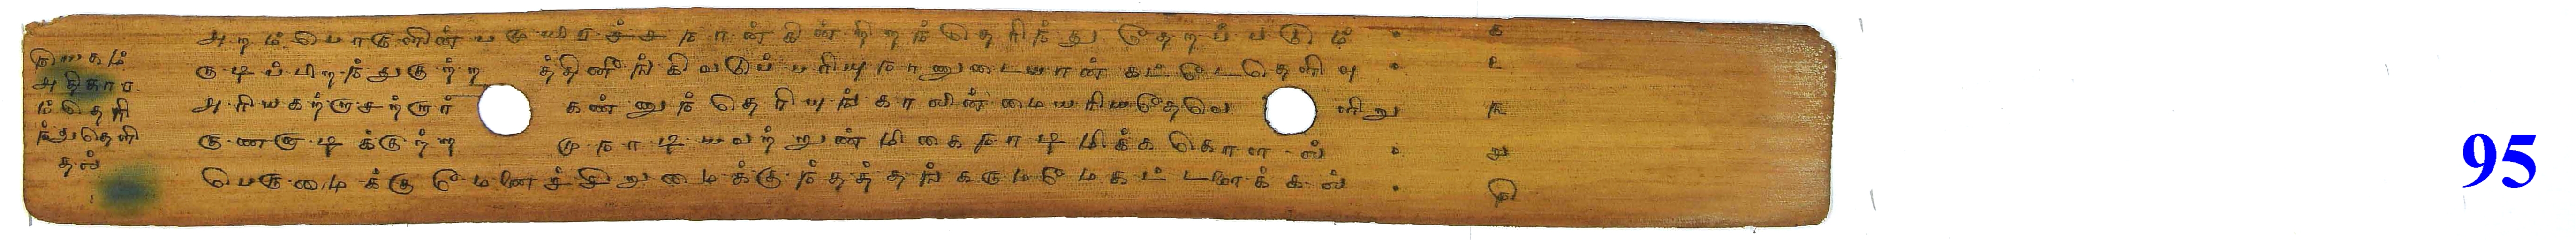 ௫௰௧ம்
அதிகார
ம்தெரி
ந்துதெளி
தல்
அறம்பொருளின்பமுயிரச்சநான்கின்றிறந்தெரிந்துதேறப்படும் ௧
குடிப்பிறந்துகுற்ற த்தினீங்கிவடுப்பரியுநாணுடையான்கட்டேதெளிவு ௨
அரியகற்றாசற்றார் கண்ணுந்தெரியுங்காலின்மையரிதேவெ ளிறு ௩
குணநாடிக்குற்ற முநாடியவற்றுண்மிகைநாடிமிக்ககொளல் ௪
பெருமைக்குமேனைச்சிறுமைக்குந்தத்தங்கருமமேகட்டளைக்கல் ௫
95